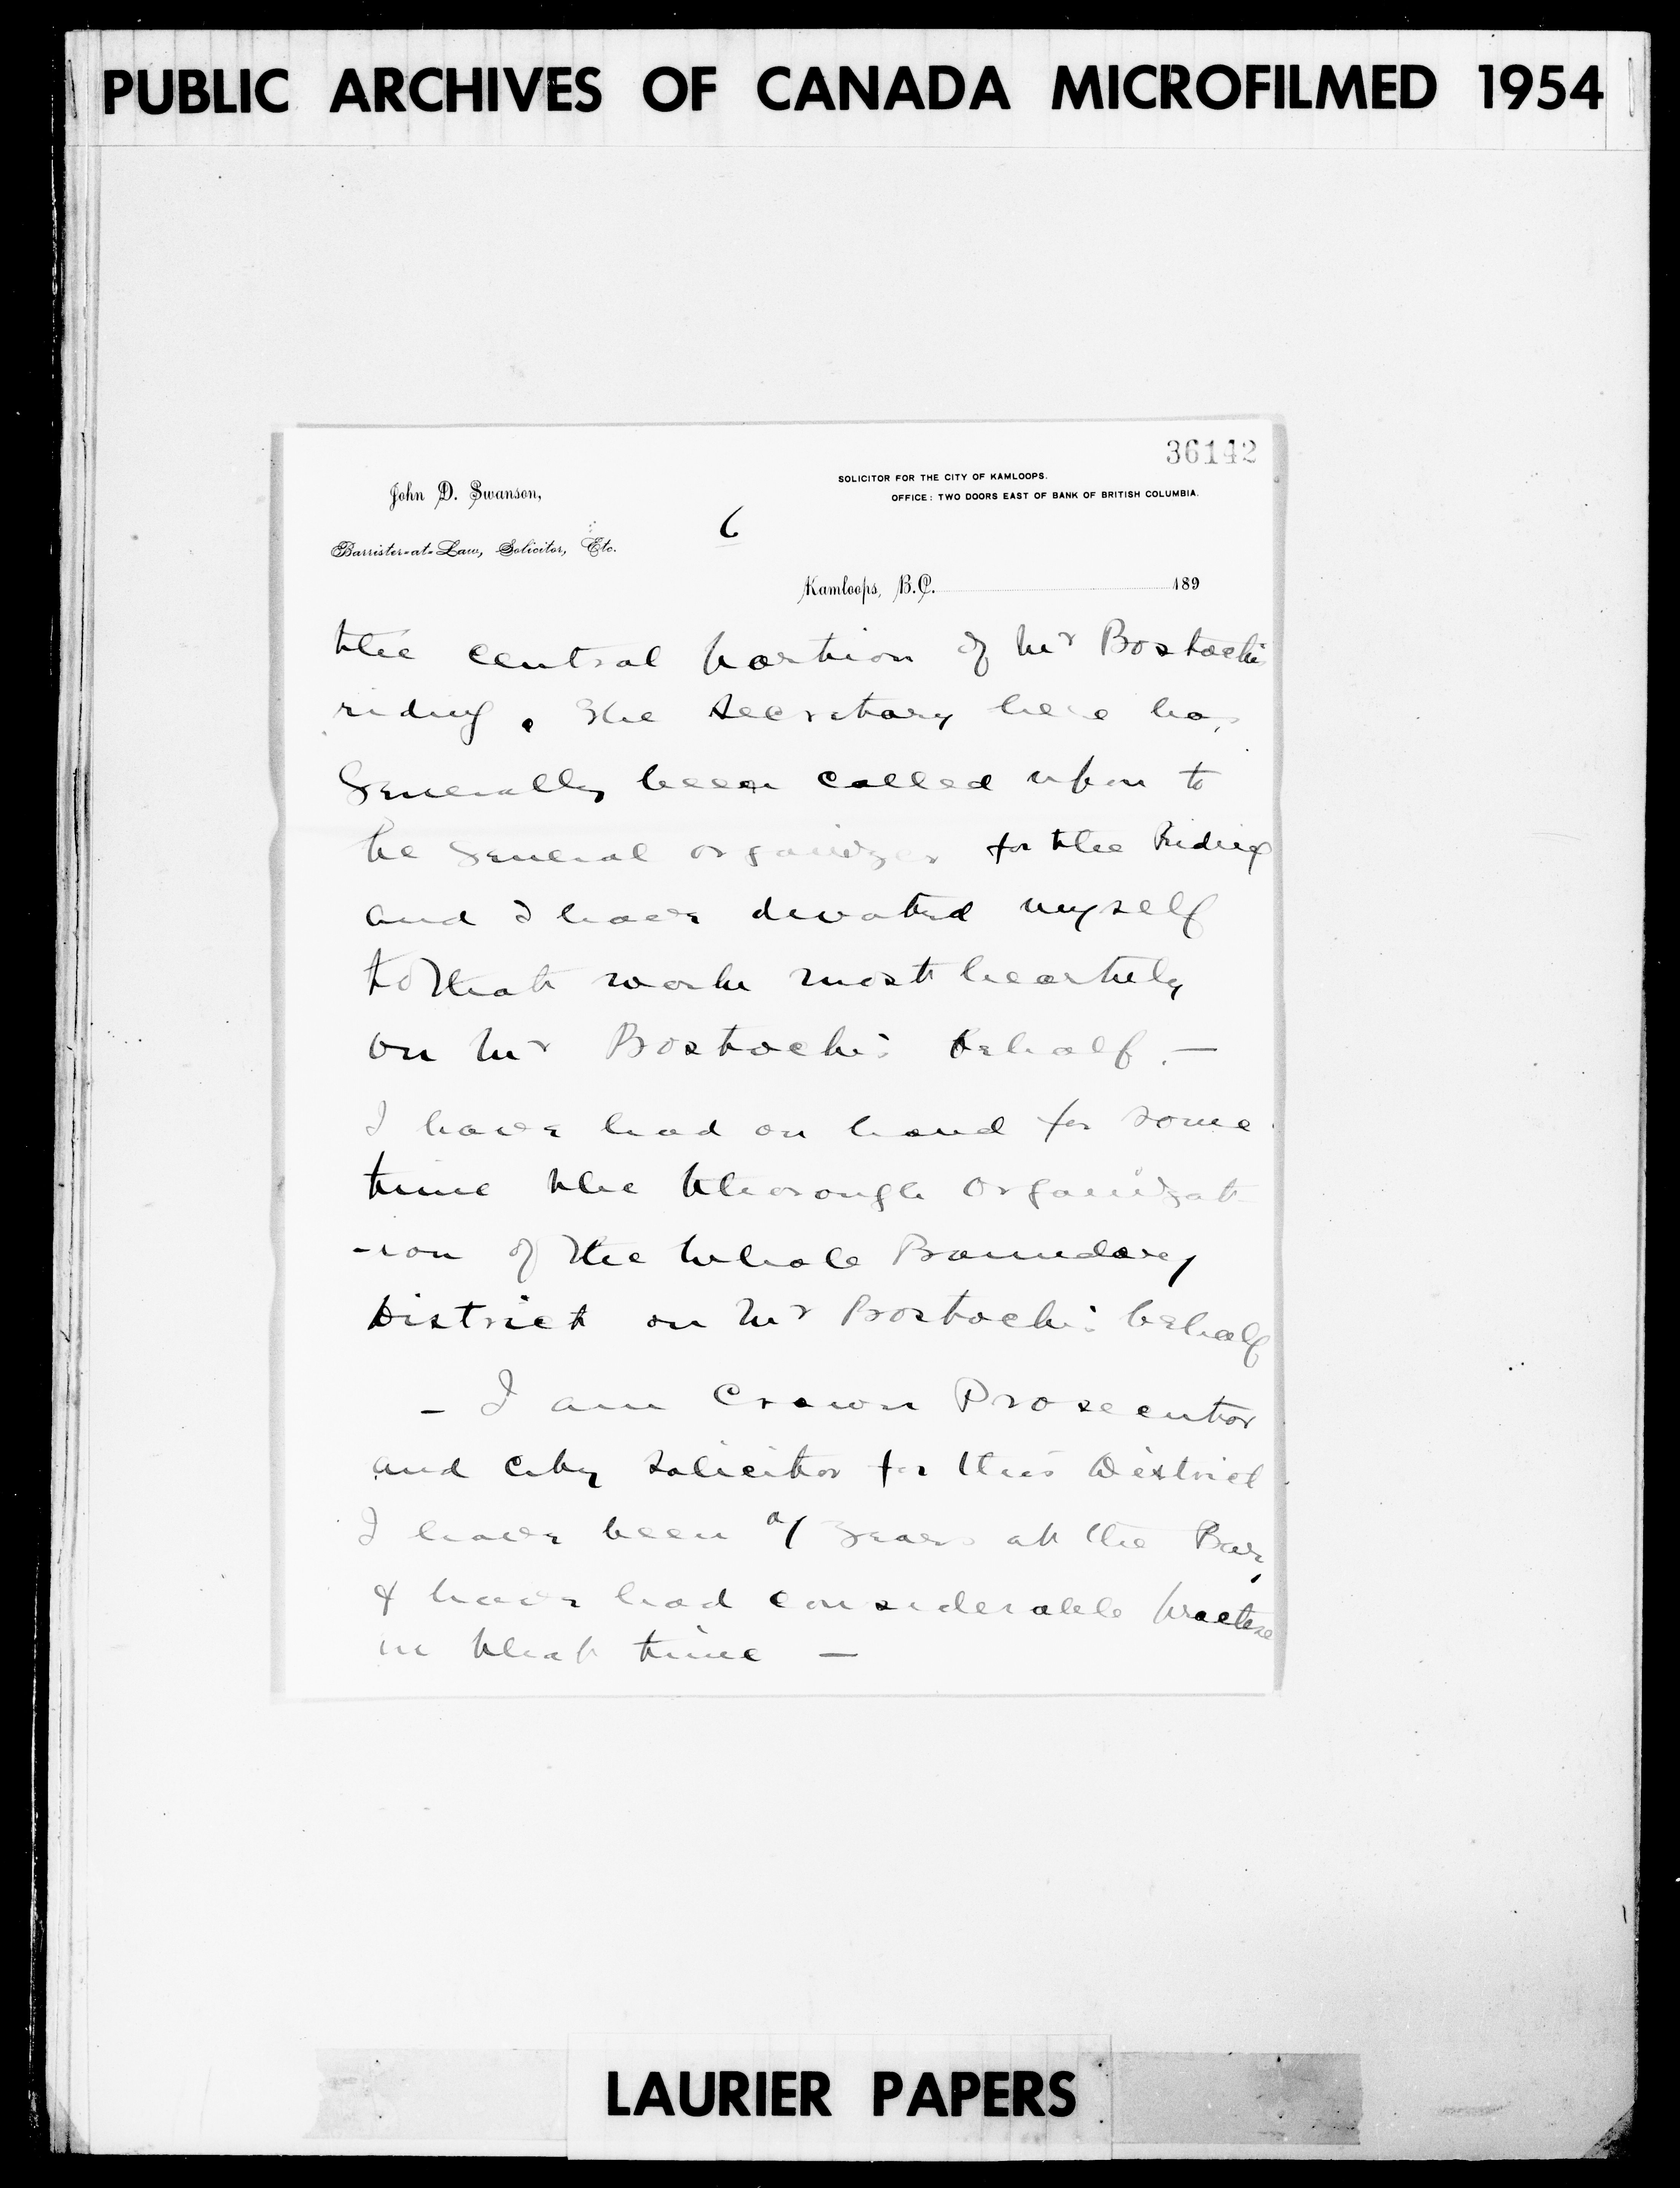 PUBLIC ARCHIVES OF CANADA MICROFILMED 1954
36142
John D. Swanson,
Barrister-at-Law, Solicitor, Etc.
SOLICITOR FOR THE CITY OF KAMLOOPS.
OFFICE: TWO DOORS EAST OF BANK OF BRITISH COLUMBIA.
6
Kamloops, B.C. 189
the central portion of Mr Bostock's
riding. The Secretary here has
generally been called upon to
be general organizer for the Riding
and I have devoted myself
to that work most heartily
on Mr Bostock's behalf. —
I have had on hand for some
time the thorough organizat
-ion of the whole Boundary
District on Mr Bostock's behalf
- I am Crown Prosecutor
and City Solicitor for this District
I have been years at the Bar,
& have had considerable practise
in that time —
LAURIER PAPERS